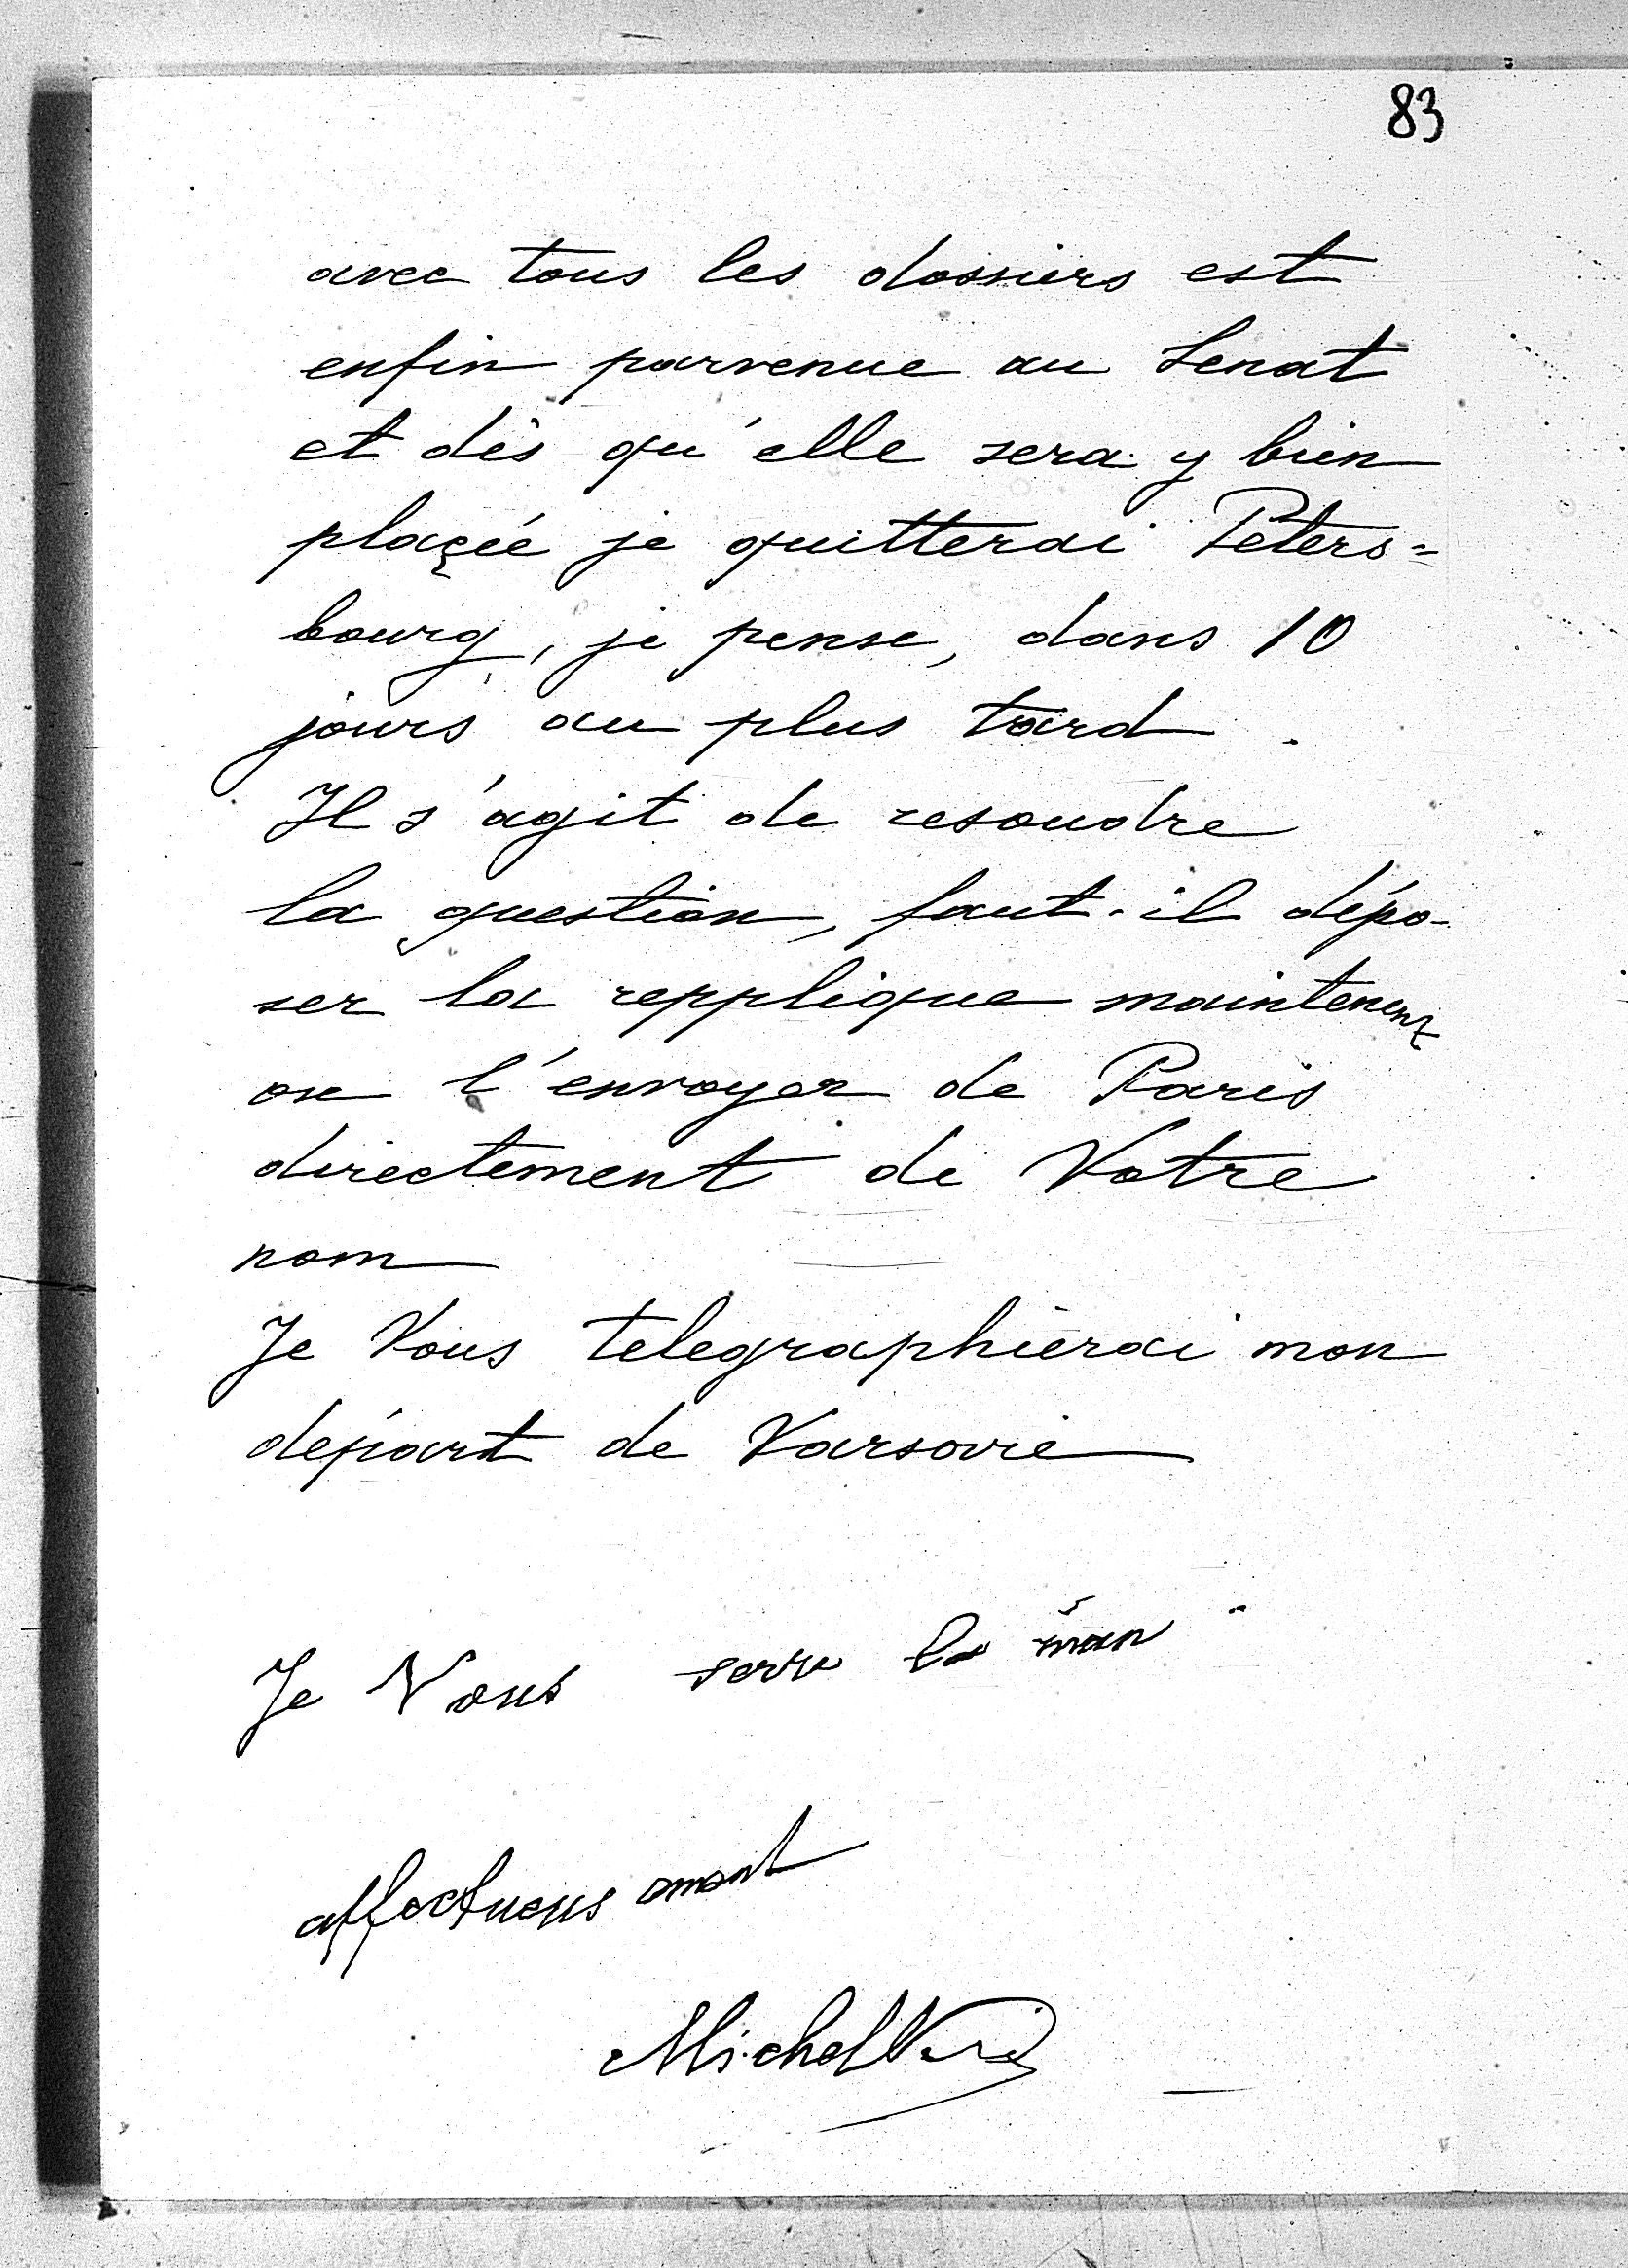 83
avec tous les dossiers est
enfin parvenue au Senat
et dès qu'elle sera y bien
plaçée je quitterai Peters=
bourg, je pense, dans 10
jours au plus tard.
Il s'agit de resoudre
la question, faut-il dépo-
ser la repplique maintenent
ou l'envoyer de Paris
directement de Votre
nom
Je Vous telegraphierai mon
départ de Varsovie
Je Vous serre la main
affectueusement
Michel